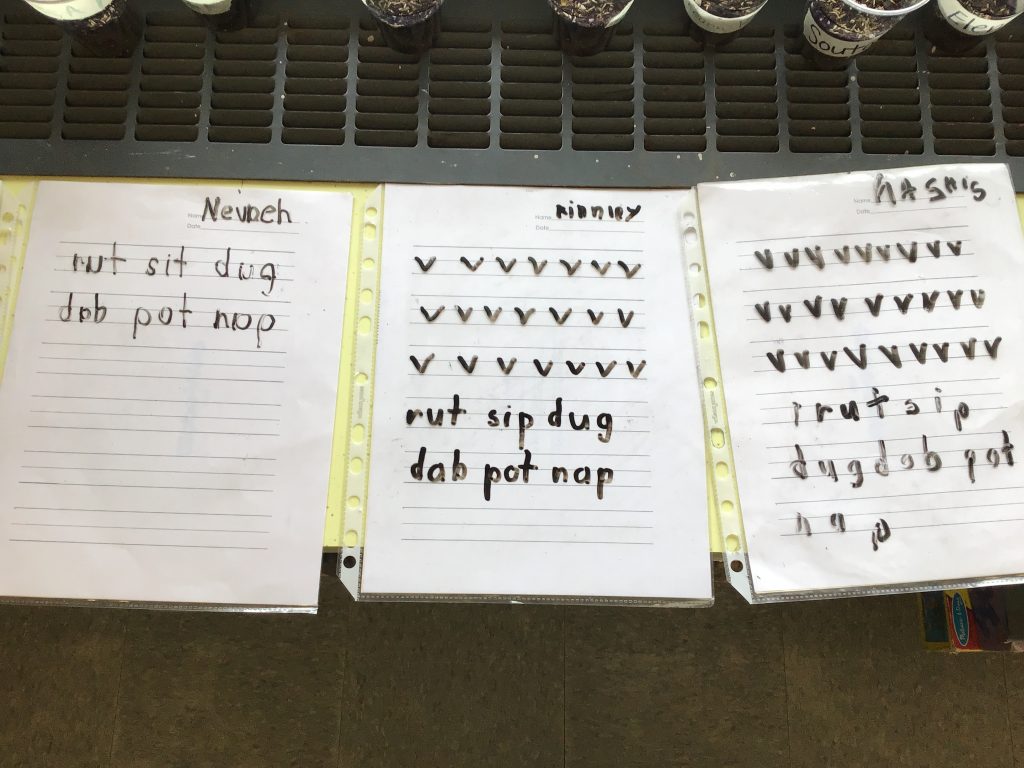 Sout
Name Nevaeh
Date
rut sit dug
dab pot nap
Name
Date
v v v v v v v
v v v v v v v
v v v v v v v
rut sip dug
dab pot nap
Name
Date
v v v v v v v v v
v v v v v v v v v
v v v v v v v v v
rut sip
dug dab pot
nap